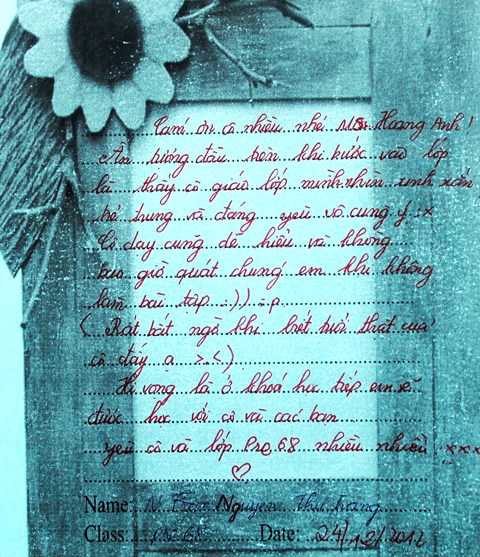 Cảm ơn cô nhiều nhé Ms. Hoang Anh!
Ấn tượng đầu tiên khi bước vào lớp
là thấy cô giáo lớp mình nhìn xinh xắn
trẻ trung và đáng yêu vô cùng ý :x
Cô dạy cũng dễ hiểu và không
bao giờ quát chúng em khi không
làm bài tập :)) :p
(Rất bất ngờ khi biết tuổi thật của
cô đấy ạ >.<)
Hi vọng là ở khoá học tiếp em sẽ
được học với cô và các bạn
yêu cô và lớp Pre 68 nhiều nhiều xxx
♡
Name: Nguyen Thu Trang
Class: 68 Date: 24/12/2012